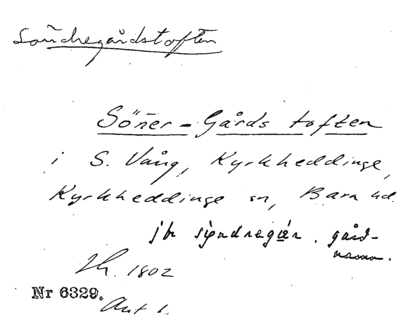 Söndregårdstoften
Söner-Gårds toften
i S. Vång, Kyrkheddinge,
Kyrkheddinge sn, Bara hd.
jfr gård-
namn.
1802
Nr 6329.